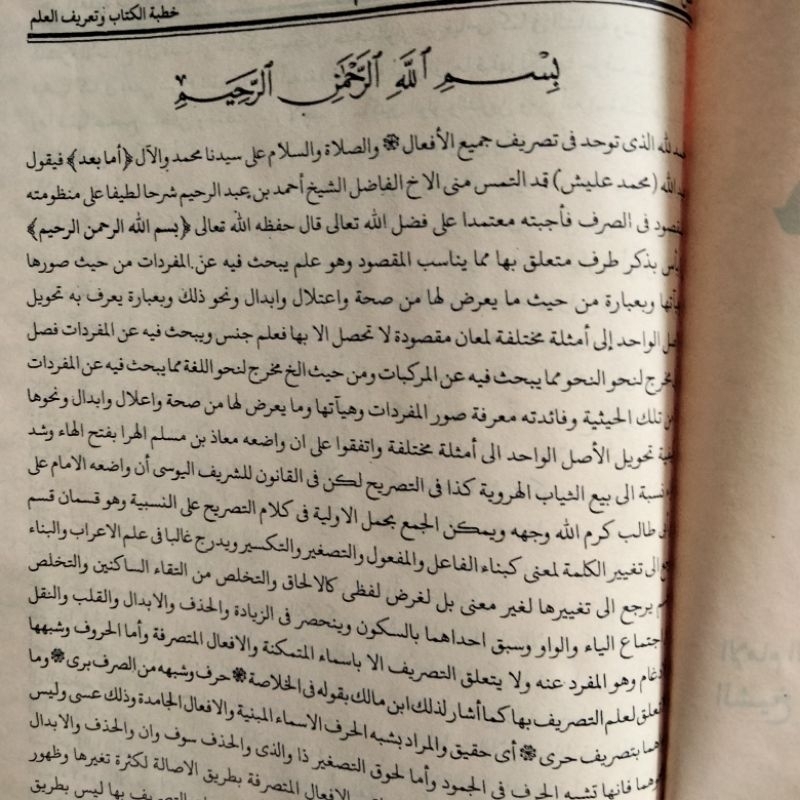 خطبة الكتاب وتعريف العلم
بسم الله الرحمن الرحيم
لله الذى توحد فى تصريف جميع الأفعال والصلاة والسلام على سيدنا محمد والآل ﴿أما بعد﴾ فيقول
الله (محمد عليش) قد التمس منى الاخ الفاضل الشيخ أحمد بن عبد الرحيم شرحا لطيفا على منظومته
فى الصرف فأجبته معتمدا على فضل الله تعالى قال حفظه الله تعالى ﴿بسم الله الرحمن الرحيم﴾
بذكر طرف متعلق بها مما يناسب المقصود وهو علم يبحث فيه عن المفردات من حيث صورها
وبعبارة من حيث ما يعرض لها من صحة واعتلال وابدال ونحو ذلك وبعبارة يعرف به تحويل
الواحد إلى أمثلة مختلفة لمعان مقصودة لا تحصل الا بها فعلم جنس ويبحث فيه عن المفردات فصل
لنحو النحو مما يبحث فيه عن المركبات ومن حيث الخ مخرج لنحو اللغة مما يبحث فيه عن المفردات
تلك الحيثية وفائدته معرفة صور المفردات وهيآتها وما يعرض لها من صحة واعلال وابدال ونحوها
تحويل الأصل الواحد الى أمثلة مختلفة واتفقوا على ان واضعه معاذ بن مسلم الهرا بفتح الهاء وشد
نسبة الى بيع الثياب الهروية كذا فى التصريح لكن فى القانون للشريف اليوسى أن واضعه الامام على
طالب كرم الله وجهه ويمكن الجمع بحمل الاولية فى كلام التصريح على النسبية وهو قسمان قسم
الى تغيير الكلمة لمعنى كبناء الفاعل والمفعول والتصغير والتكسير ويدرج غالبا فى علم الاعراب والبناء
يرجع الى تغييرها لغير معنى بل لغرض لفظى كالالحاق والتخلص من التقاء الساكنين والتخلص
اجتماع الياء والواو وسبق احداهما بالسكون وينحصر فى الزيادة والحذف والابدال والقلب والنقل
وهو المفرد عنه ولا يتعلق التصريف الا باسماء المتمكنة والافعال المتصرفة وأما الحروف وشبهها
تعلق لعلم التصريف بها كما أشار لذلك ابن مالك بقوله فى الخلاصة حرف وشبهه من الصرف برى وما
بتصريف حرى أى حقيق والمراد بشبه الحرف الاسماء المبنية والافعال الجامدة وذلك عسى وليس
فانها تشبه الحرف فى الجمود وأما لحوق التصغير ذا والذى والحذف سوف وان والحذف والابدال
الافعال المتصرفة بطريق الاصالة لكثرة تغيرها وظهور
التصريف بها ليس بطريق